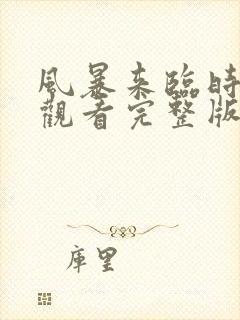 風暴來臨時
觀看完整版
庫里